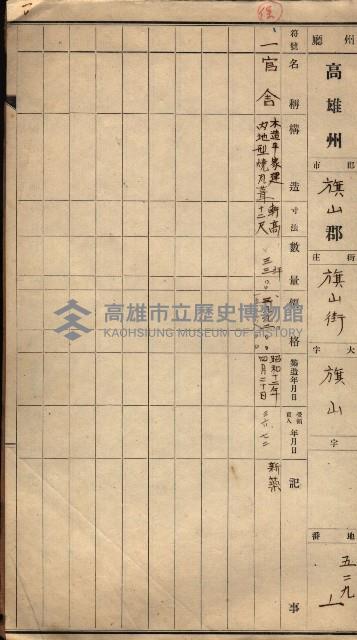 州廳 高雄州
郡市 旗山郡
街庄 旗山街
大字 旗山
字
地番 五二九ノ一
符號 名稱 構造 寸法 數量 價格 築造年月日 受領買入年月日 記事
一 官舍
木造平家建
內地型燒瓦葺
軒高
十二尺
昭和十二年
四月二十日
新築
高雄市立歷史博物館
KAOHSIUNG MUSEUM OF HISTORY